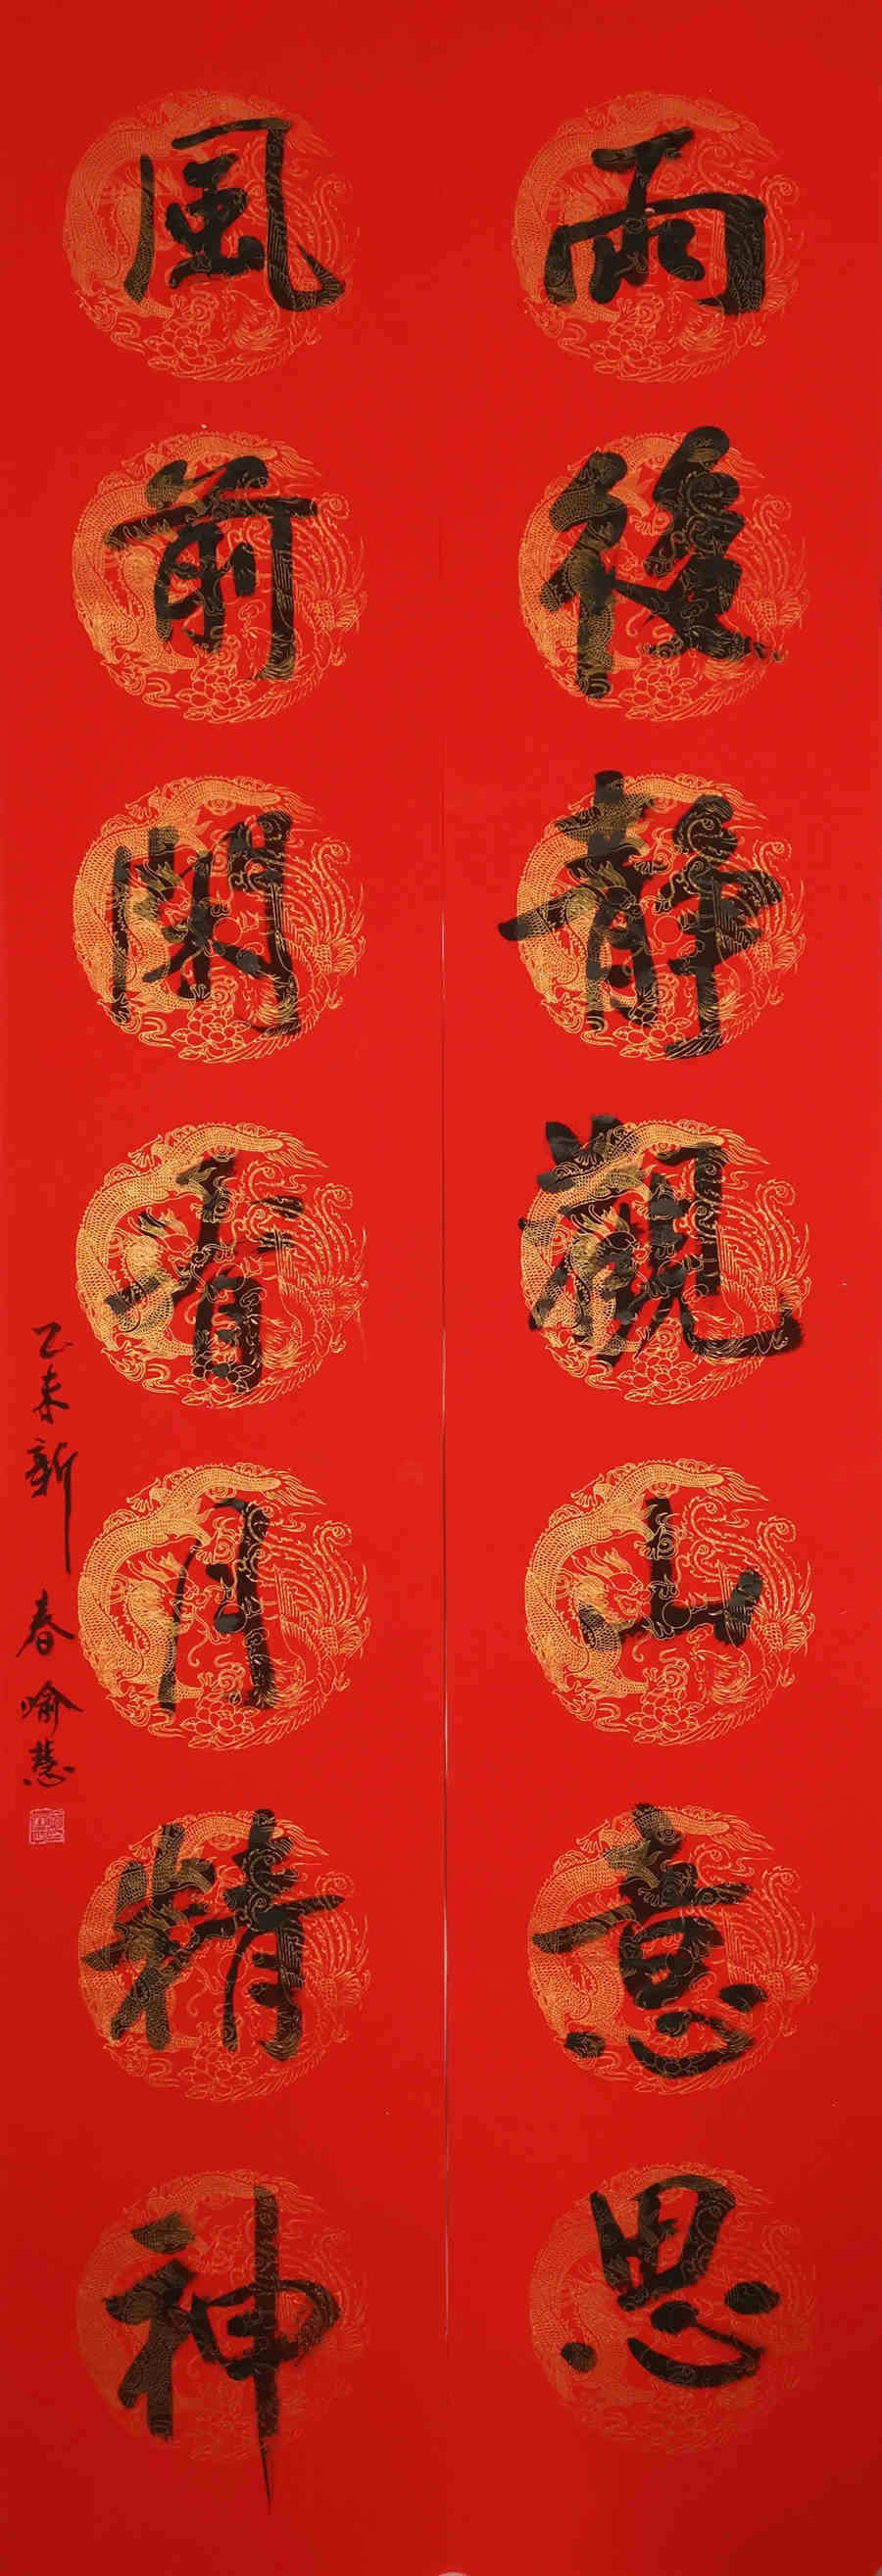 雨後静觀山意思
風前閑看月精神
乙未新春喻慧